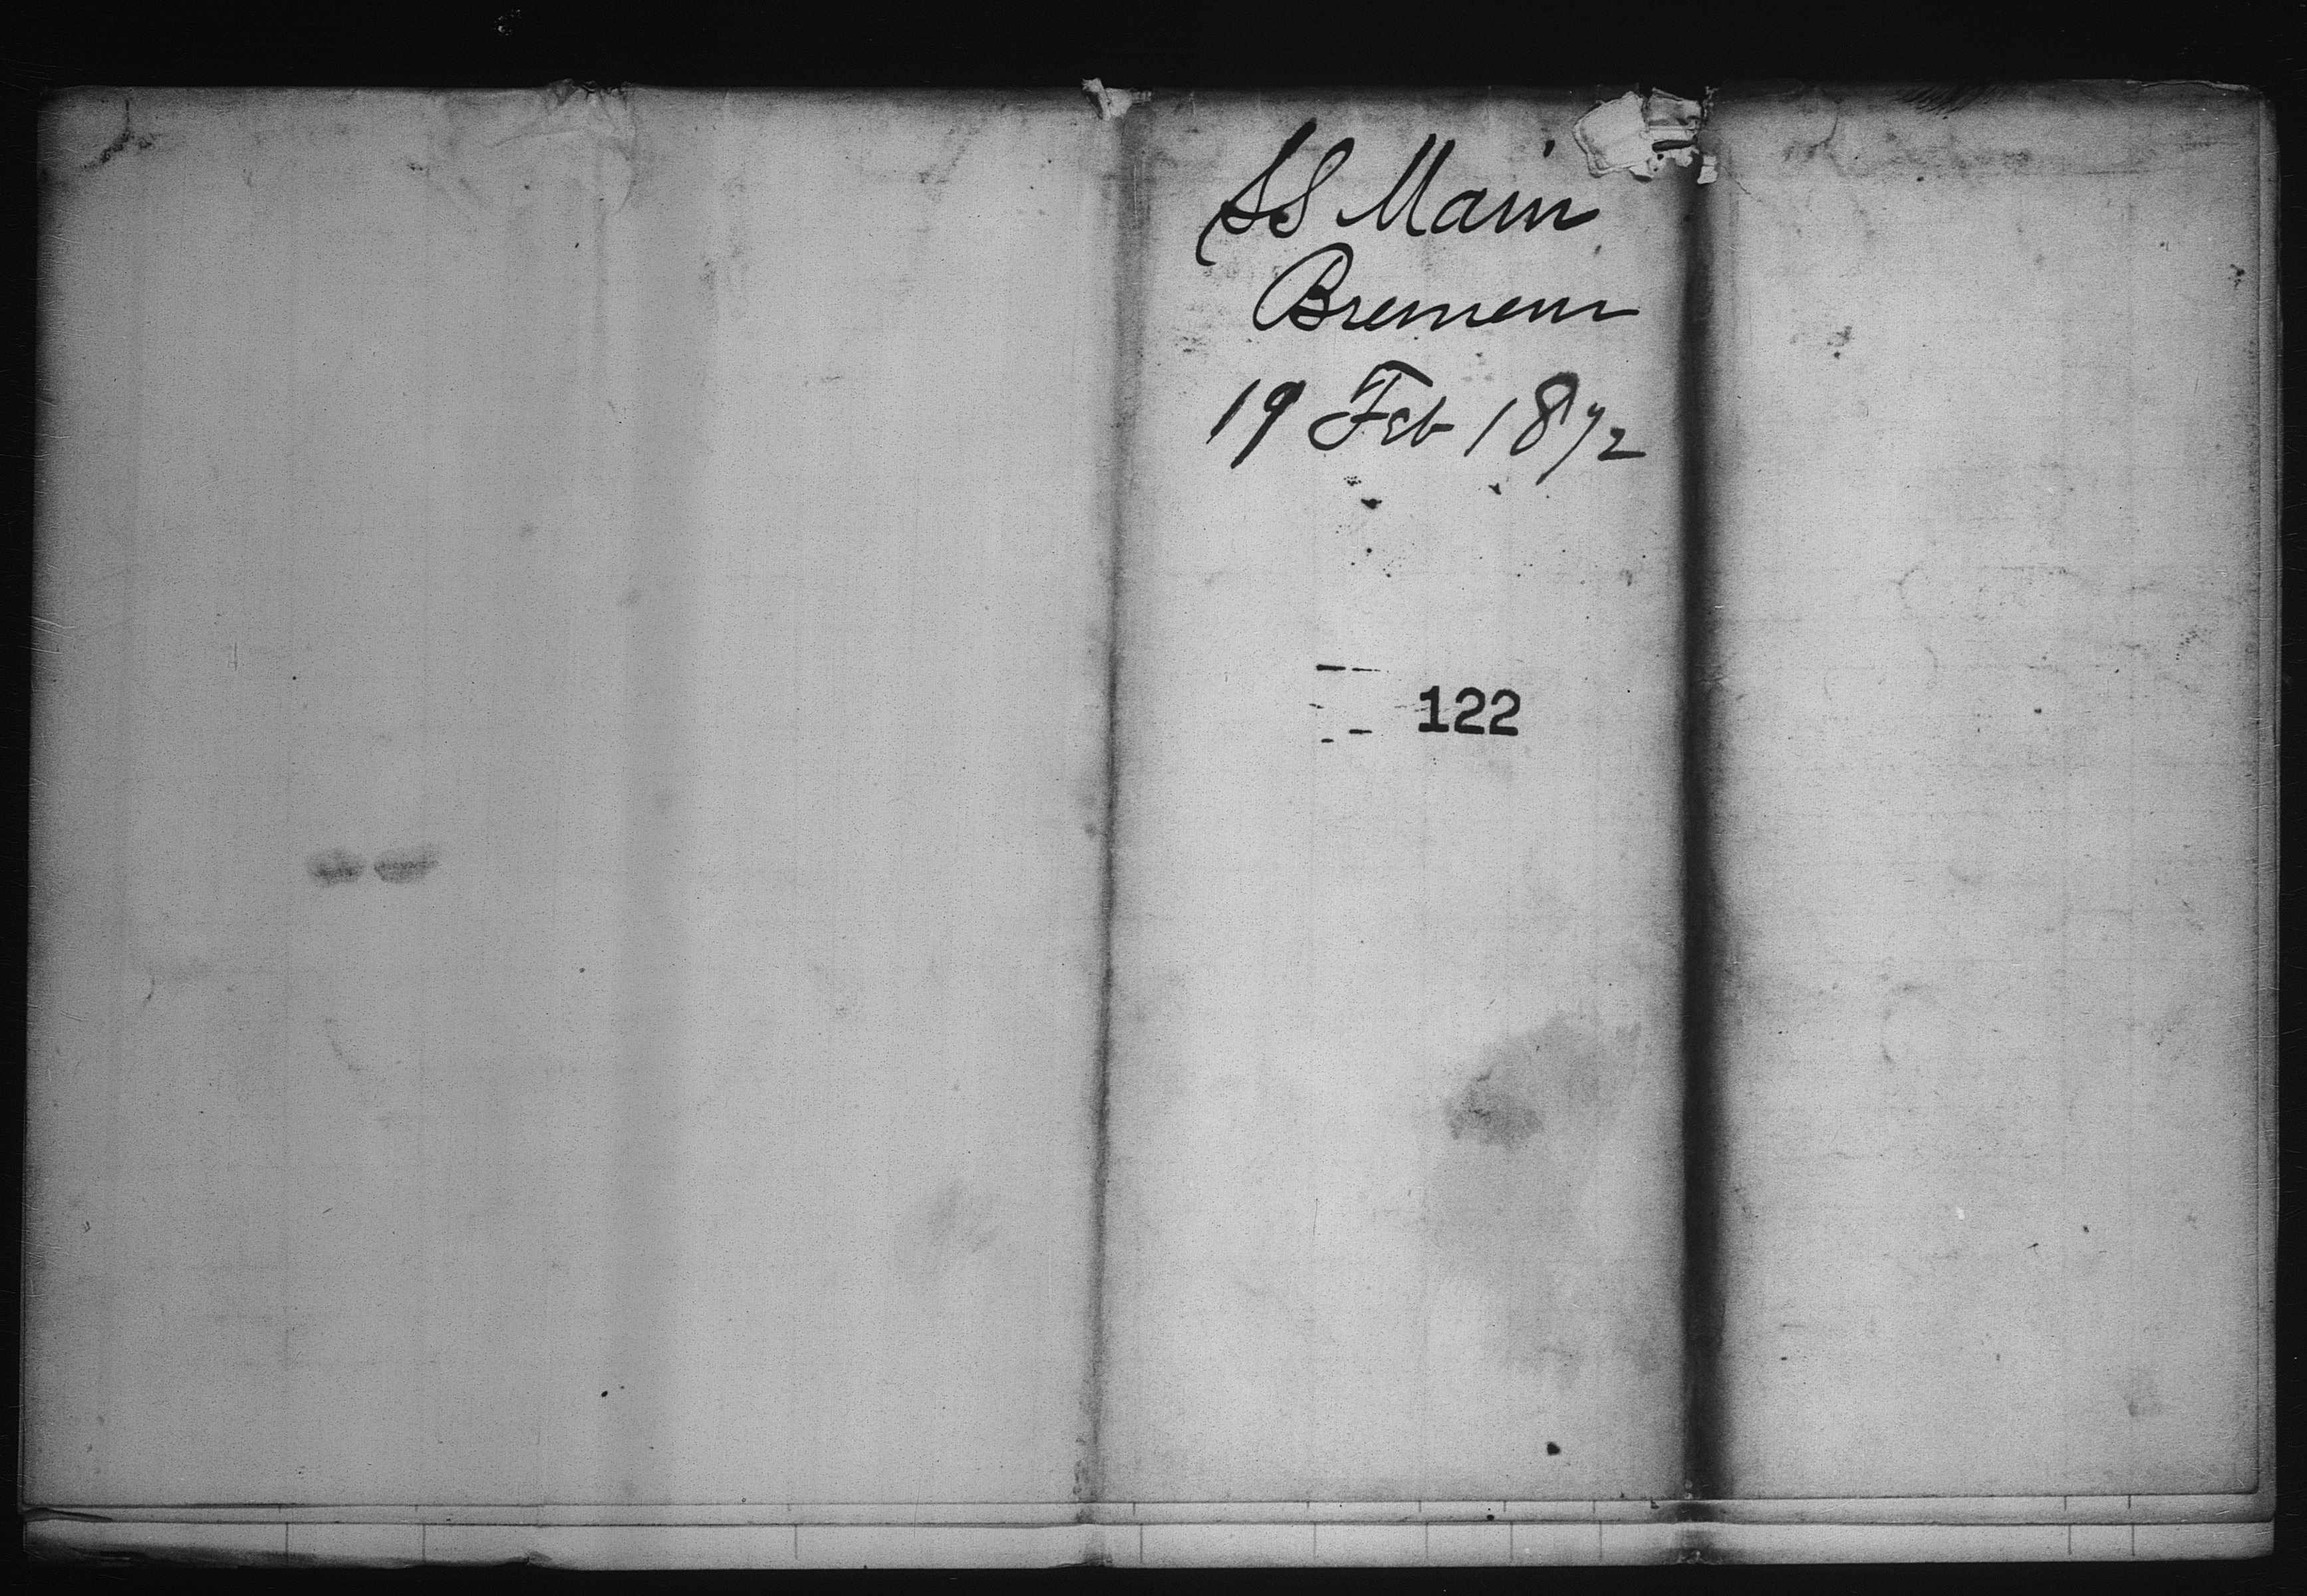 SS Main
Bremen
19 Feb 1872
122